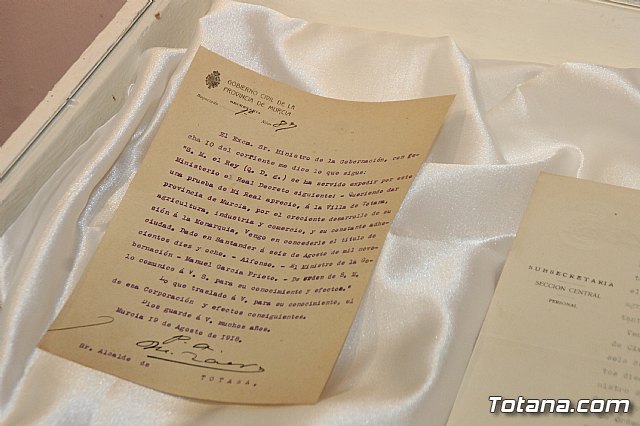 GOBIERNO CIVIL DE LA
PROVINCIA DE MURCIA
Negociado
Núm. 87
El Excm. Sr. Ministro de la Gobernación, con fe-
cha 10 del corriente me dice lo que sigue:
"S. M. el Rey (Q. D. g.) se ha servido expedir por este
Ministerio el Real Decreto siguiente: - Queriendo dar
una prueba de Mi Real aprecio, á la Villa de Totana,
provincia de Murcia, por el creciente desarrollo de su
agricultura, industria y comercio, y su constante adhe-
sión á la Monarquía, Vengo en concederle el título de
ciudad. Dado en Santander á seis de Agosto de mil nove-
cientos diez y ocho. - Alfonso. - El Ministro de la Go-
bernación - Manuel García Prieto. - De orden de S. M.
lo comunico á V. S. para su conocimiento y efectos."
Lo que traslado á V. para su conocimiento, el
de esa Corporación y efectos consiguientes.
Dios guarde á V. muchos años.
Murcia 19 de Agosto de 1918.
Sr. Alcalde de
TOTANA.
SUBSECRETARIA
SECCION CENTRAL
PERSONAL
el
seis
tos
nistro
Totana.com